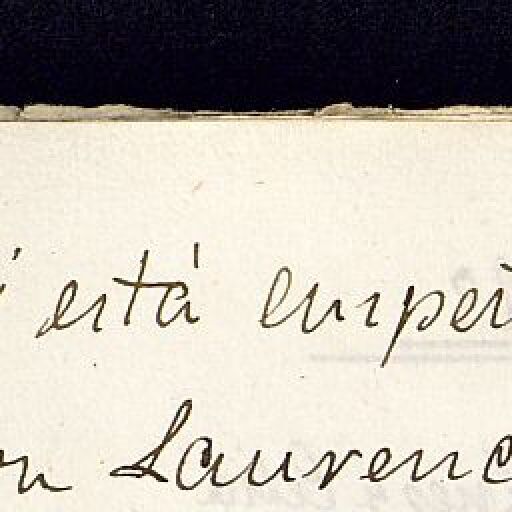 está empei
on Laurenc